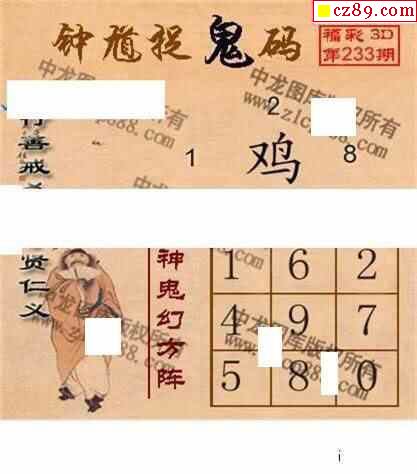 cz89.com
钟馗捉鬼码
福彩3D
第233期
2
1 鸡 8
行善戒
贤仁义
神鬼幻方阵
1 6 2
4 9 7
5 8 0
中龙图库版权所有